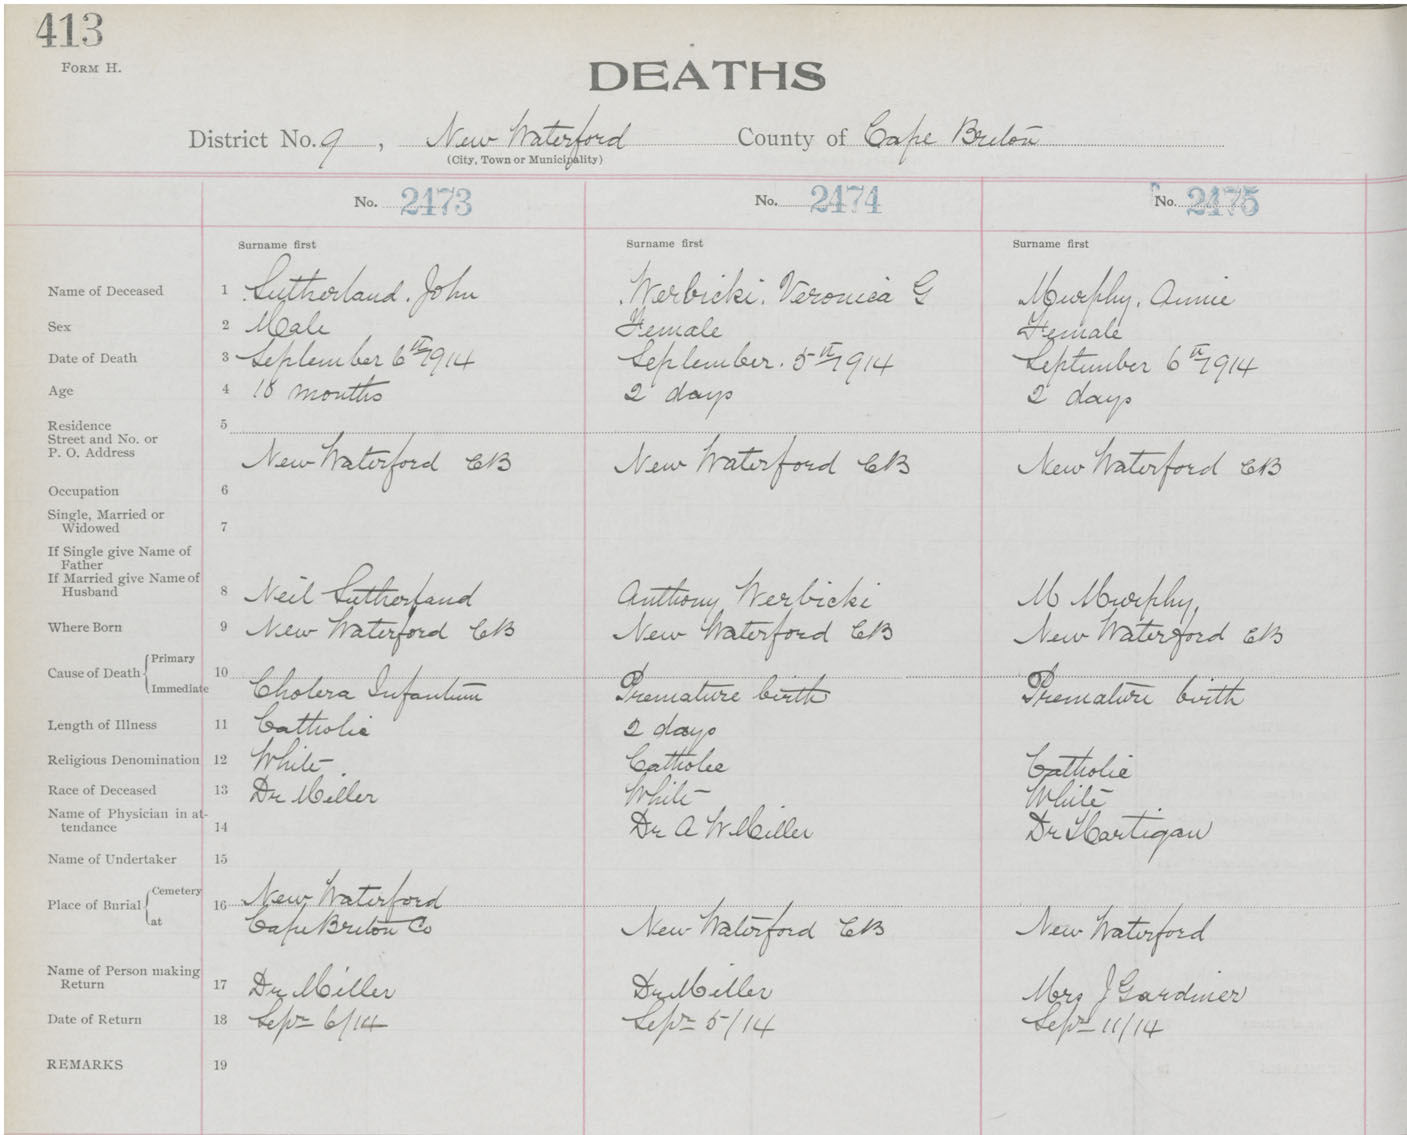 413
FORM H.
DEATHS
District No. 9, New Waterford County of Cape Breton
(City, Town or Municipality)
No. 2473 No. 2474 No. 2475
Surname first Surname first Surname first
Name of Deceased 1 Sutherland. John Werbicki. Veronica G Murphy. Annie
Sex 2 Male Female Female
Date of Death 3 September 6th 1914 September. 5th 1914 September 6th 1914
Age 4 18 months 2 days 2 days
Residence 5
Street and No. or
P. O. Address New Waterford CB New Waterford CB New Waterford CB
Occupation 6
Single, Married or
Widowed 7
If Single give Name of
Father
If Married give Name of
Husband 8 Neil Sutherland Anthony Werbicki M Murphy,
Where Born 9 New Waterford CB New Waterford CB New Waterford CB
Cause of Death Primary 10
Immediate Cholera Infantum Premature birth Premature birth
Length of Illness 11 Catholic 2 days
Religious Denomination 12 White Catholic Catholic
Race of Deceased 13 Dr Miller White White
Name of Physician in at-
tendance 14 Dr A W Miller Dr Hartigan
Name of Undertaker 15
Place of Burial Cemetery 16 New Waterford
at Cape Breton Co New Waterford CB New Waterford
Name of Person making
Return 17 Dr Miller Dr Miller Mrs J Gardiner
Date of Return 18 Sepr 6/14 Sepr 5/14 Sepr 11/14
REMARKS 19